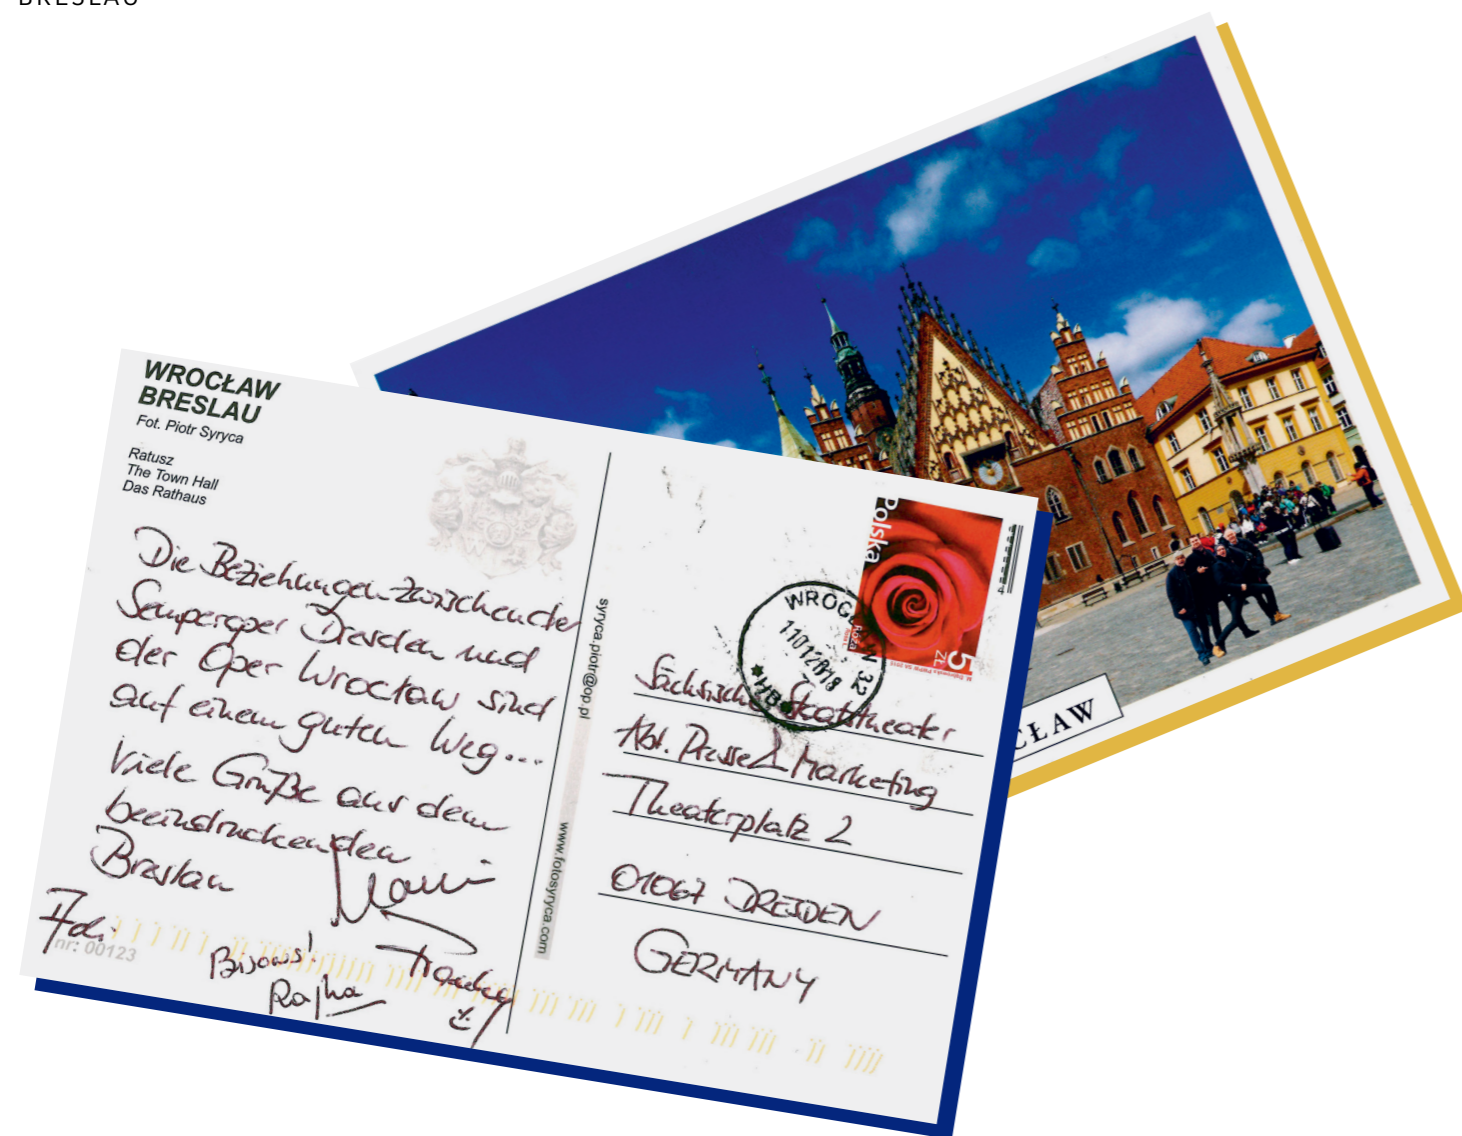 BRESLAU
WROCŁAW
BRESLAU
Fot. Piotr Syryca
Ratusz
The Town Hall
Das Rathaus
Die Beziehungen zwischen der
Semperoper Dresden und
der Oper Wrocław sind
auf einem guten Weg...
Viele Grüße aus dem
beeindruckenden
Breslau
nr: 00123
syryca.piotr@op.pl
www.fotosyryca.com
Polska
5
ZŁ
Sächsische Staatstheater
Abt. Presse & Marketing
Theaterplatz 2
01067 DRESDEN
GERMANY